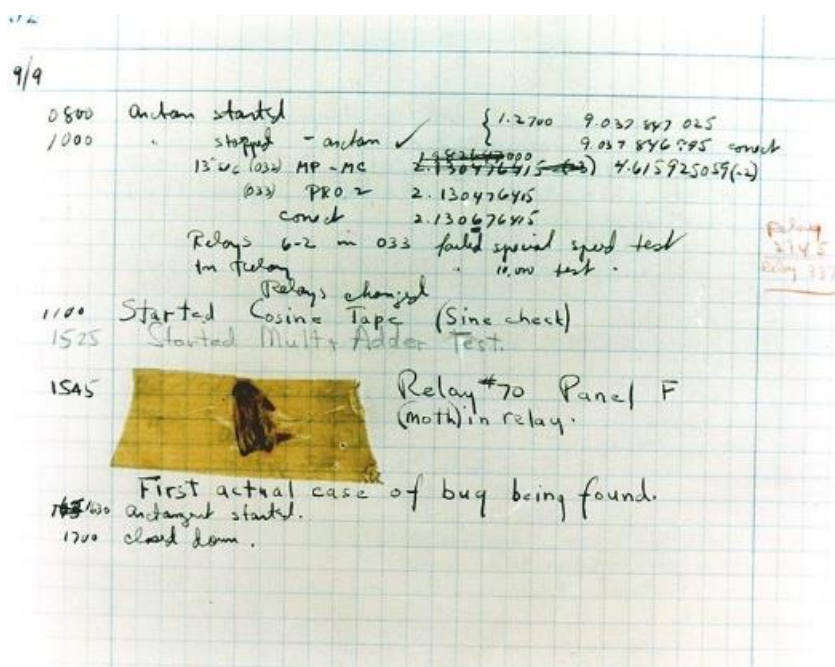 9/9
0800 antan started { 1.2700 9.037 847 025
1000 " stopped - antan ✓ 9.037 846 995 conect
13" uc (032) MP - MC 2.130476415 (-3) 4.615925059(-2)
(033) PRO 2 2.130476415
conect 2.130676415
Relays 6-2 in 033 failed special speed test
In Relay " 10,000 test .
Relay
Relays changed
1100 Started Cosine Tape (Sine check)
1525 Started Mult + Adder Test.
1545 Relay #70 Panel F
(moth) in relay.
First actual case of bug being found.
1630 antangent started.
1700 closed down.